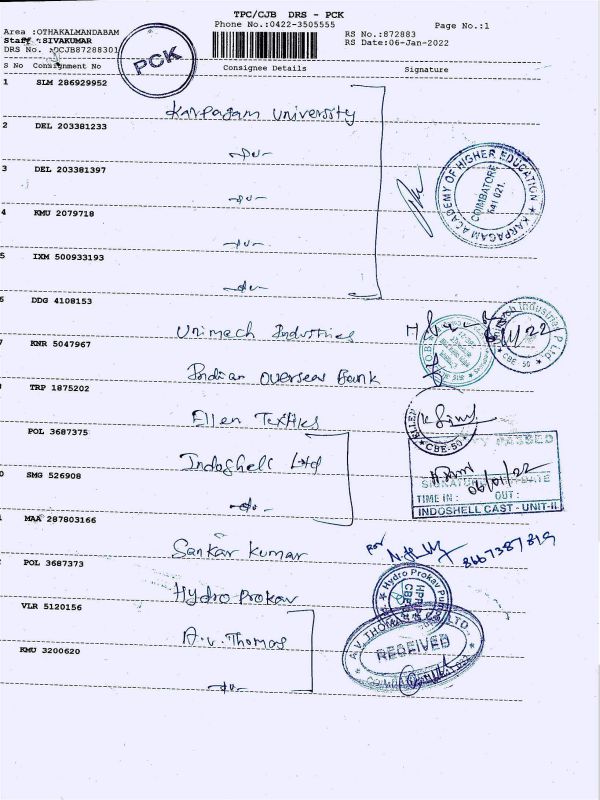 TPC/CJB DRS - PCK
Area :OTHAKALMANDABAM Phone No.:0422-3505555 Page No.:1
Staff :SIVAKUMAR RS No.:872883
DRS No. :CJB87288301 RS Date:06-Jan-2022
PCK
S No Consignment No Consignee Details Signature
1 SLM 286929952
Karpagam University
2 DEL 203381233
-Do-
3 DEL 203381397
-Do-
KARPAGAM ACADEMY OF HIGHER EDUCATION
COIMATORE
641 021.
4 KMU 2079718
-Do-
5 IXM 500933193
-Do-
6 DDG 4108153
Unimech Industries
7 KNR 5047967
CBE-50
Indian Overseas Bank
TRP 1875202
Ellen Textiles
ELLEN
CBE-50
POL 3687375
PASSED
Indoshell Ltd
SIGNATURE DATE
06/01/22
0 SMG 526908
TIME IN : OUT :
-do-
INDOSHELL CAST - UNIT-II
MAA 287803166
Sankar Kumar for 8667387819
POL 3687373
Hydro Prokav
Hydro Prokav Pumps
VLR 5120156
A.V. Thomas
A.V. THOMAS LTD.
RECEIVED
KMU 3200620
-do-